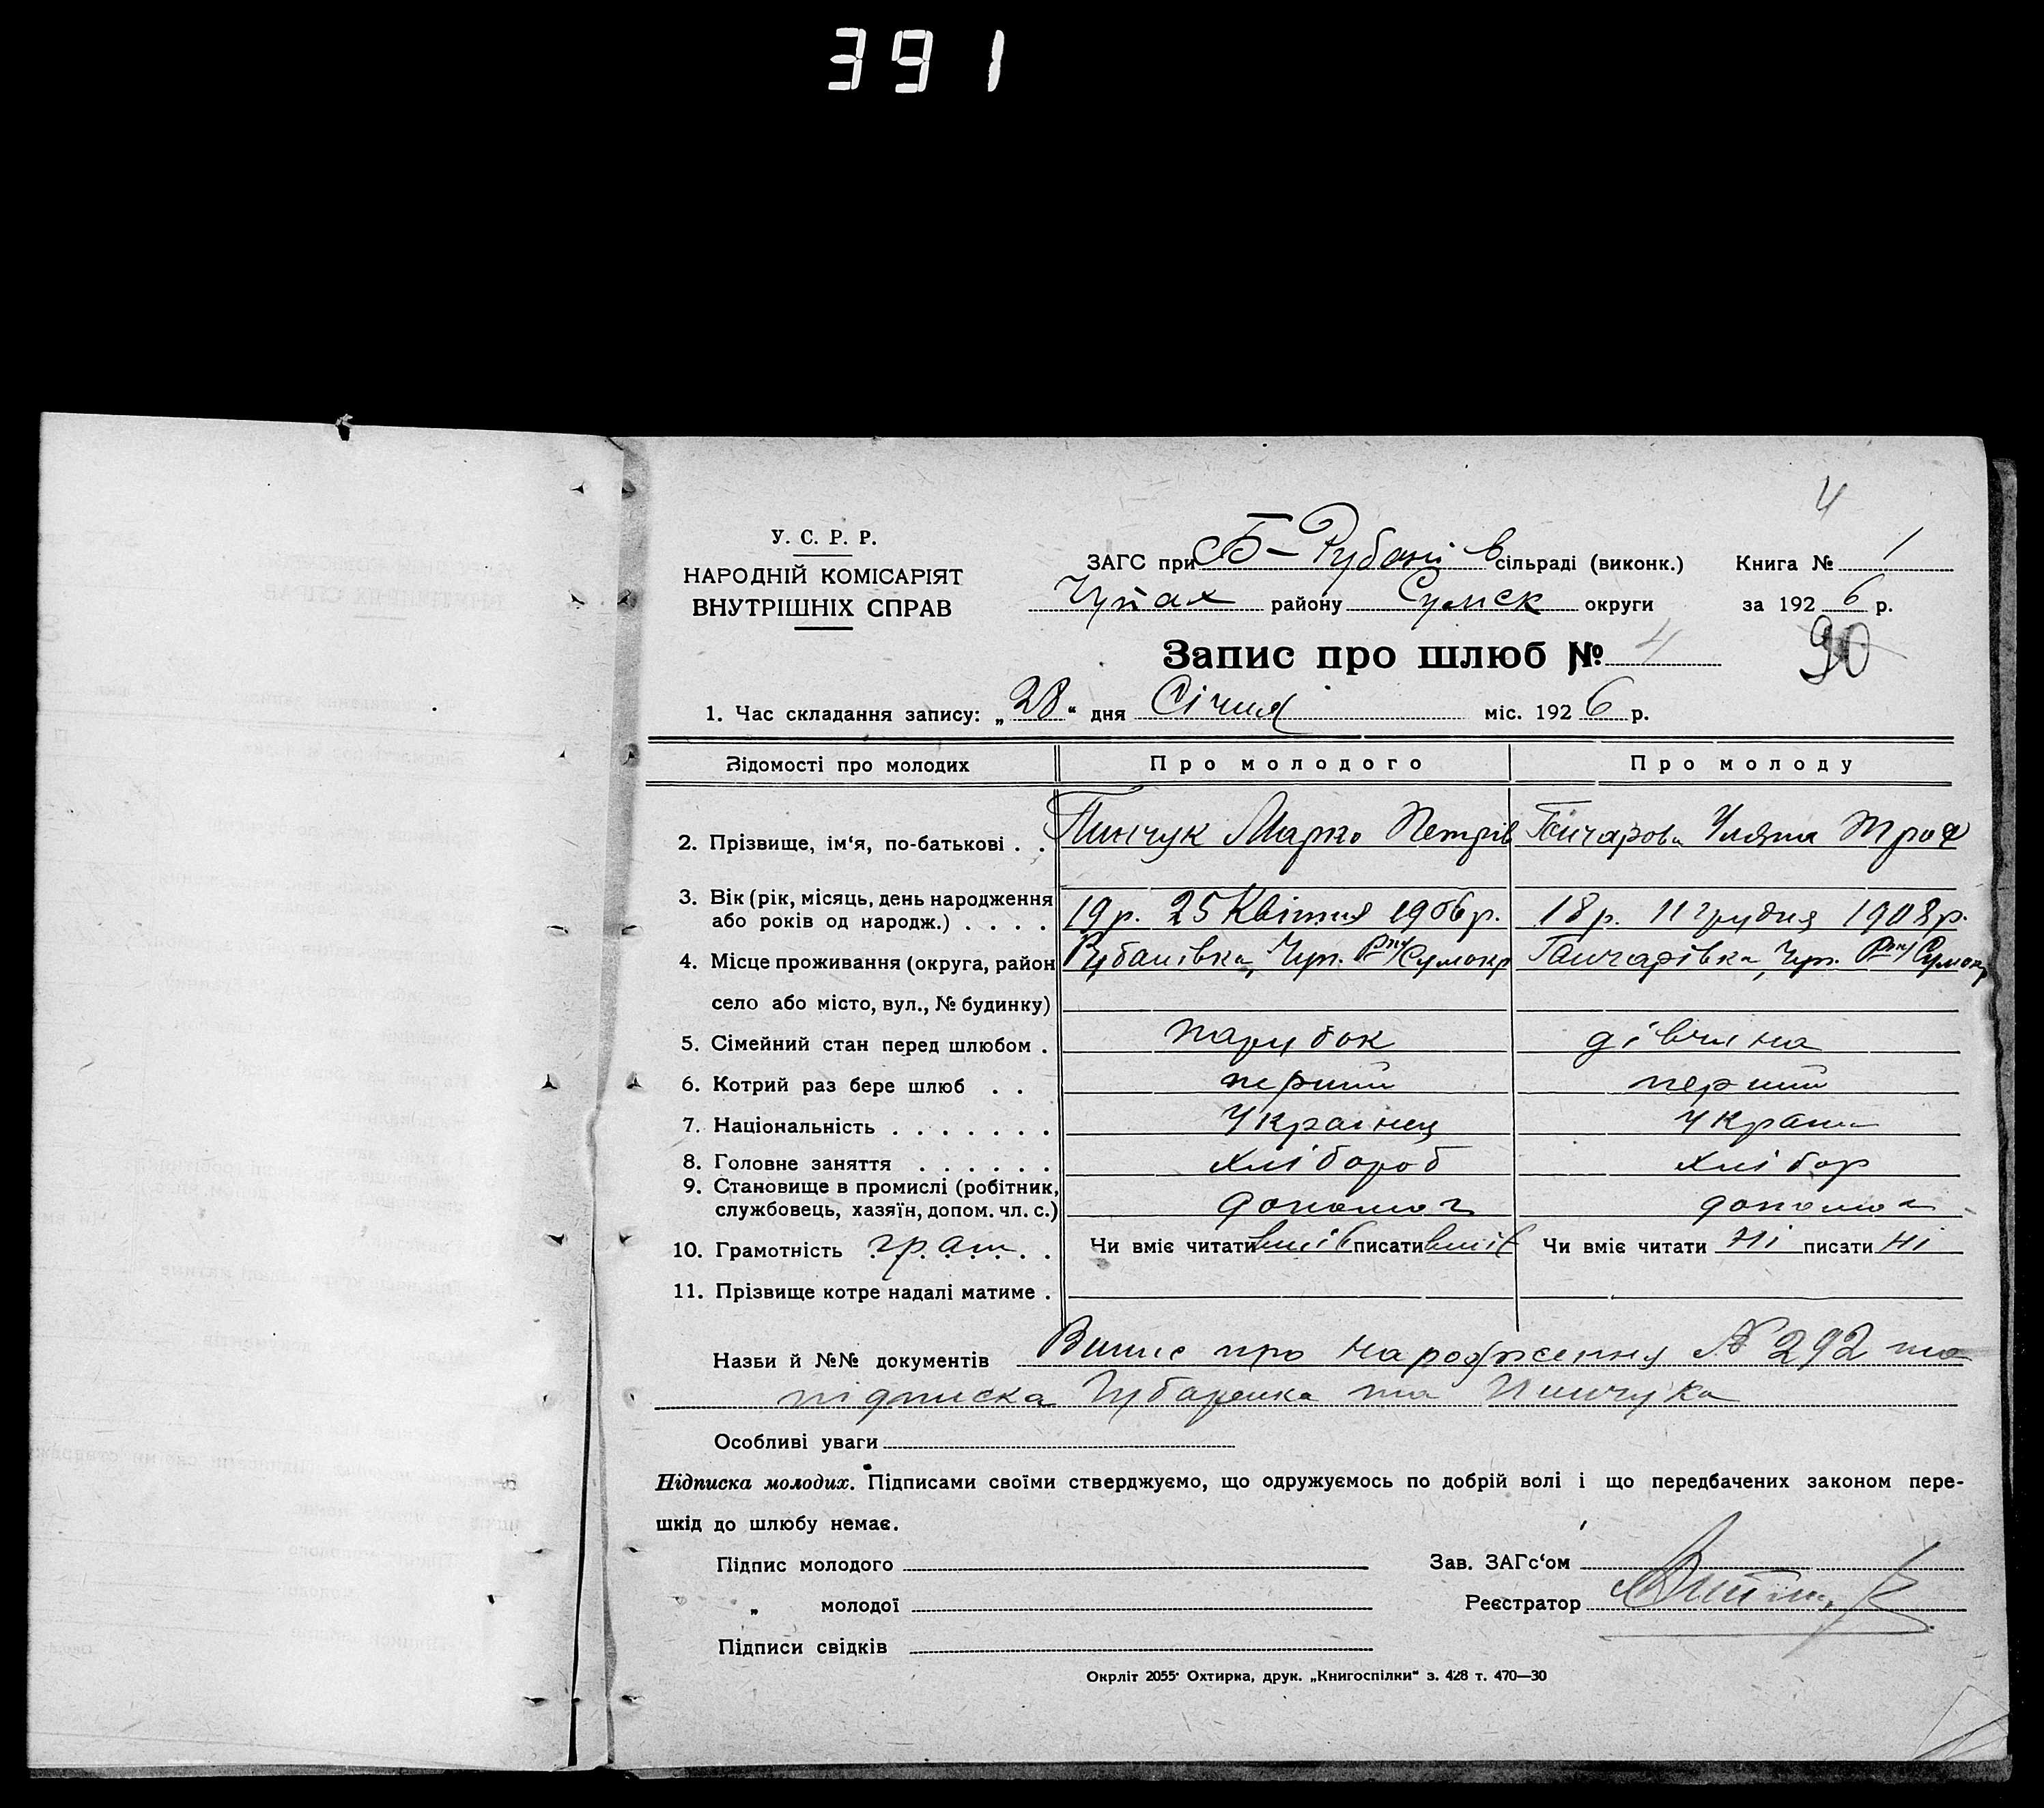 391
4
У. С. Р. Р.
НАРОДНІЙ КОМІСАРІЯТ
ВНУТРІШНІХ СПРАВ
ЗАГС при Б-Рубані в сільраді (виконк.) Книга № 1
Чупах району Сумск округи за 1926 р.
Запис про шлюб № 4
90
1. Час складання запису: „28“ дня Січня міс. 1926 р.
Відомості про молодих Про молодого Про молоду
2. Прізвище, ім'я, по-батькові . . Пинчук Марко Петрів Гончарова Уляна Троф
3. Вік (рік, місяць, день народження
або років од народж.) . . . . 19 р. 25 Квітня 1906 р. 18 р. 11 грудня 1908 р.
4. Місце проживання (округа, район Рубанівка, Чуп. Р-ну Сумокр Гончарівка, Чуп. Р-ну Сумокр
село або місто, вул., № будинку)
5. Сімейний стан перед шлюбом . парубок дівчина
6. Котрий раз бере шлюб . . перший перший
7. Національність . . . . . . . Українец Украин
8. Головне заняття . . . . . . хлібороб хлібор
9. Становище в промислі (робітник,
службовець, хазяїн, допом. чл. с.) допомог допомог
10. Грамотність грам . . Чи вміє читати вміє писати вміє Чи вміє читати ні писати ні
11. Прізвище котре надалі матиме .
Назви й №№ документів Випис про народження № 292 та
підписка Губаренка та Пинчука
Особливі уваги
Підписка молодих. Підписами своїми стверджуємо, що одружуємось по добрій волі і що передбачених законом пере-
шкід до шлюбу немає.
Підпис молодого Зав. ЗАГс'ом
„ молодої Реєстратор
Підписи свідків
Окрліт 2055 Охтирка, друк. „Книгоспілки“ з. 428 т. 470—30